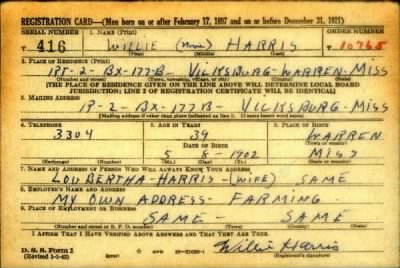 REGISTRATION CARD—(Men born on or after February 17, 1897 and on or before December 31, 1921)
SERIAL NUMBER 1. NAME (Print) ORDER NUMBER
T 416 WILLIE (None) HARRIS 10765
(First) (Middle) (Last)
2. PLACE OF RESIDENCE (Print)
RT-2-BX-177B-VICKSBURG-WARREN-MISS
(Number and street) (Town, township, village, or city) (County) (State)
[THE PLACE OF RESIDENCE GIVEN ON THE LINE ABOVE WILL DETERMINE LOCAL BOARD
JURISDICTION; LINE 2 OF REGISTRATION CERTIFICATE WILL BE IDENTICAL]
3. MAILING ADDRESS
R-2-BX-177B-VICKSBURG-MISS
[Mailing address if other than place indicated on line 2. If same insert word same]
4. TELEPHONE 5. AGE IN YEARS 6. PLACE OF BIRTH
3304 39 WARREN
DATE OF BIRTH (Town or county)
5 8 1902 MISS
(Exchange) (Number) (Mo.) (Day) (Yr.) (State or country)
7. NAME AND ADDRESS OF PERSON WHO WILL ALWAYS KNOW YOUR ADDRESS
LOU BERTHA-HARRIS-(WIFE) SAME
8. EMPLOYER'S NAME AND ADDRESS
MY OWN ADDRESS-FARMING
9. PLACE OF EMPLOYMENT OR BUSINESS
SAME - SAME
(Number and street or R. F. D. number) (Town) (County) (State)
I AFFIRM THAT I HAVE VERIFIED ABOVE ANSWERS AND THAT THEY ARE TRUE.
D. S. S. Form 1
(Revised 1-1-42) (over) Willie Harris
(Registrant's signature)